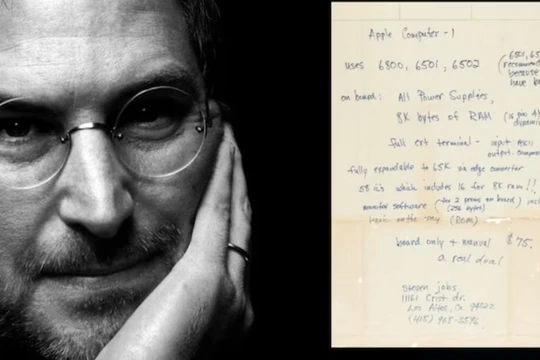 Apple Computer - 1
uses 6800, 6501, 6502
because
on board: All Power Supplies,
8K bytes of RAM (16 pin
full crt terminal - input ASCII
output
fully expandable to 65K via edge connector
58 ic's which includes 16 for 8K ram!!
monitor software (for 2 proms on board)
(256 bytes)
(ROM)
board only + manual $75.
a real deal
steven jobs
11161 Crist dr.
Los Altos, Ca 94022
(415) 968-3596